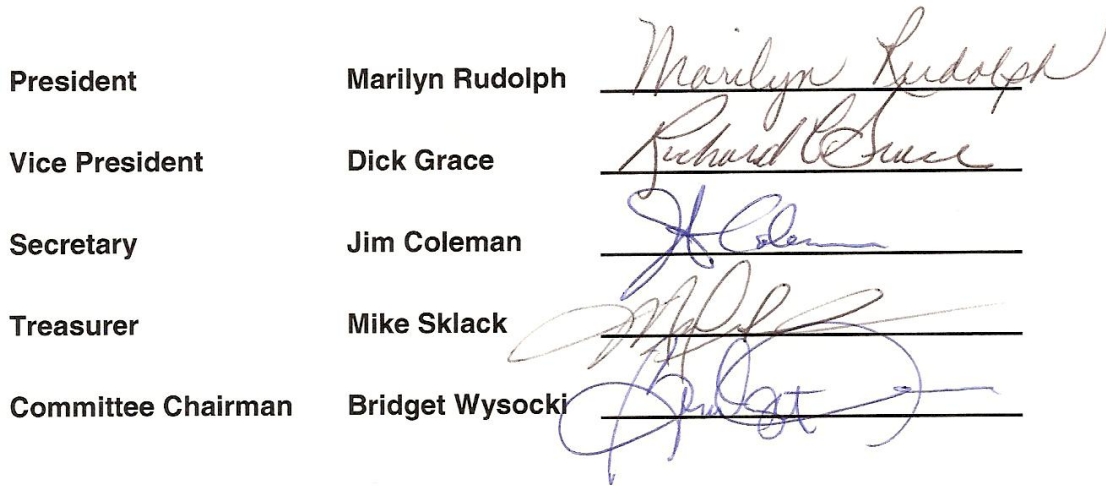 President Marilyn Rudolph Marilyn Rudolph
Vice President Dick Grace Richard C Grace
Secretary Jim Coleman J A. Coleman
Treasurer Mike Sklack
Committee Chairman Bridget Wysocki Bridget